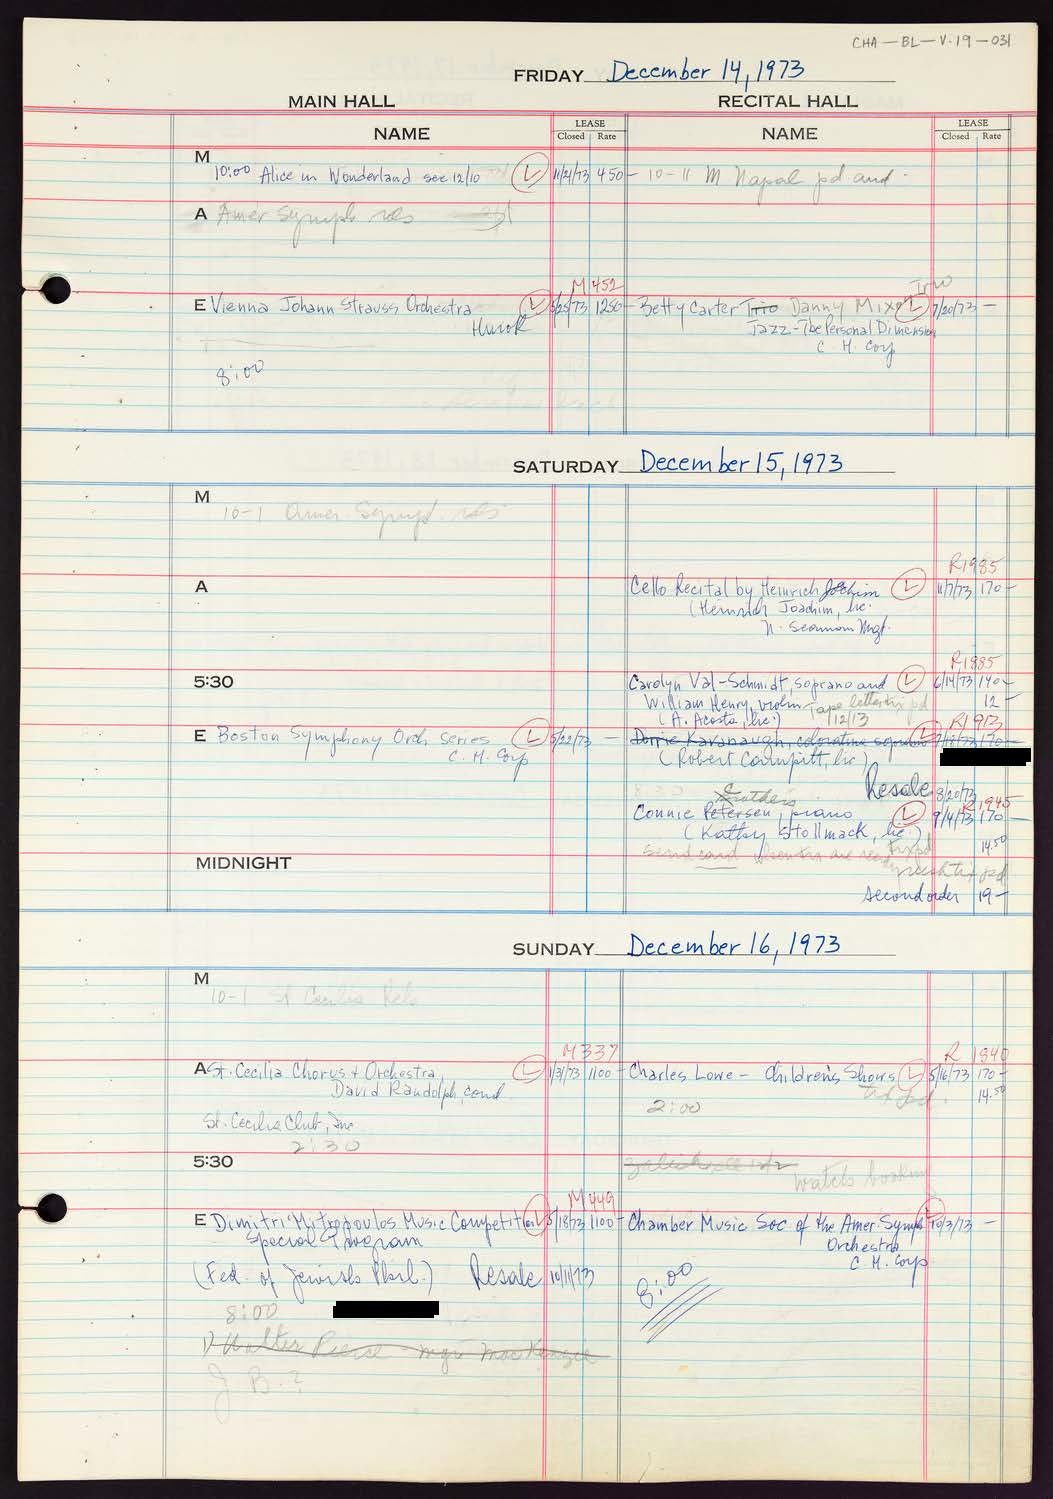 CHA-BL-V.19-031
FRIDAY December 14, 1973
MAIN HALL RECITAL HALL
NAME LEASE Closed Rate NAME LEASE Closed Rate
M
10:00 Alice in Wonderland see 12/10 L 11/21/73 450- 10-11 M Napal pd aud
A Amer Symph rels
M 452
Trio
E Vienna Johann Strauss Orchestra L 5/25/73 1250- Betty Carter Trio Danny Mixon L 7/20/73 -
Hurok Jazz-The Personal Dimension
C. H. Corp
8:00
SATURDAY December 15, 1973
M
10-1 Amer Symph. rels
R1985
A Cello Recital by Heinrich Joachim L 11/7/73 170-
(Heinrich Joachim, lic.
N. Seaman Mgt.
R1885
5:30 Carolyn Val-Schmidt, soprano and L 6/14/73 140-
William Henry, violin Tape pd 12-
(A. Acosta, lic.) 12/13
R1913
E Boston Symphony Orch Series L 5/22/73 - Dorrie Kavanaugh, coloratura soprano L 7/18/73 170-
C. H. Corp (Robert lic)
Resale 8/20/73
R1945
Connie Petersen, piano L 9/4/73 170-
(Kathy Stollmack, lic.) 14.50
send card are ready tix pd
MIDNIGHT tix pd
second order 19-
SUNDAY December 16, 1973
M
10-1 St Cecilia Rels
M337 R 1840
A St. Cecilia Chorus + Orchestra L 1/31/73 1100- Charles Lowe - Children's Shows L 5/16/73 170-
David Randolph, cond. tix pd. 14.50
2:00
St. Cecilia Club, Inc
2:30
5:30 12/2
watch booking
M449
E Dimitri Mitropoulos Music Competition L 5/18/73 1100- Chamber Music Soc of the Amer. Symph L 10/3/73 -
Special Program Orchestra
C. H. Corp.
(Fed. of Jewish Phil.) Resale 10/11/73
8:00
8:00
Walter Pierce - mgr MacKenzie
J B.?